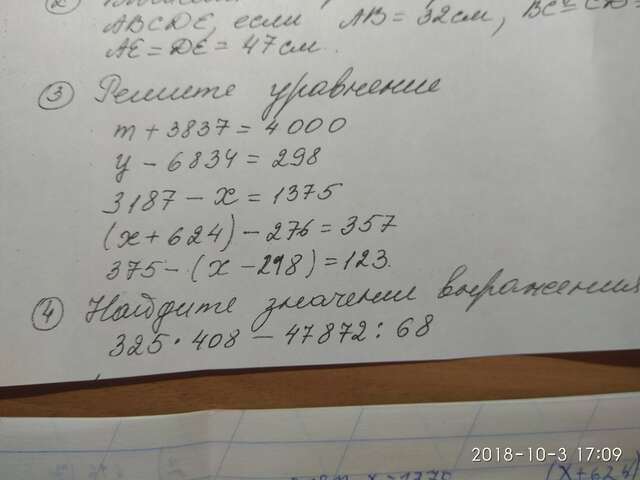 ②
ABCDE, если AB = 32см, BC = CD =
AE = DE = 47 см.
③ Решите уравнение
m + 3837 = 4000
y - 6834 = 298
3187 - x = 1375
(x + 624) - 276 = 357
375 - (x - 298) = 123.
④ Найдите значении выражения
325 · 408 - 47872 : 68
2018-10-3 17:09
(x+624)